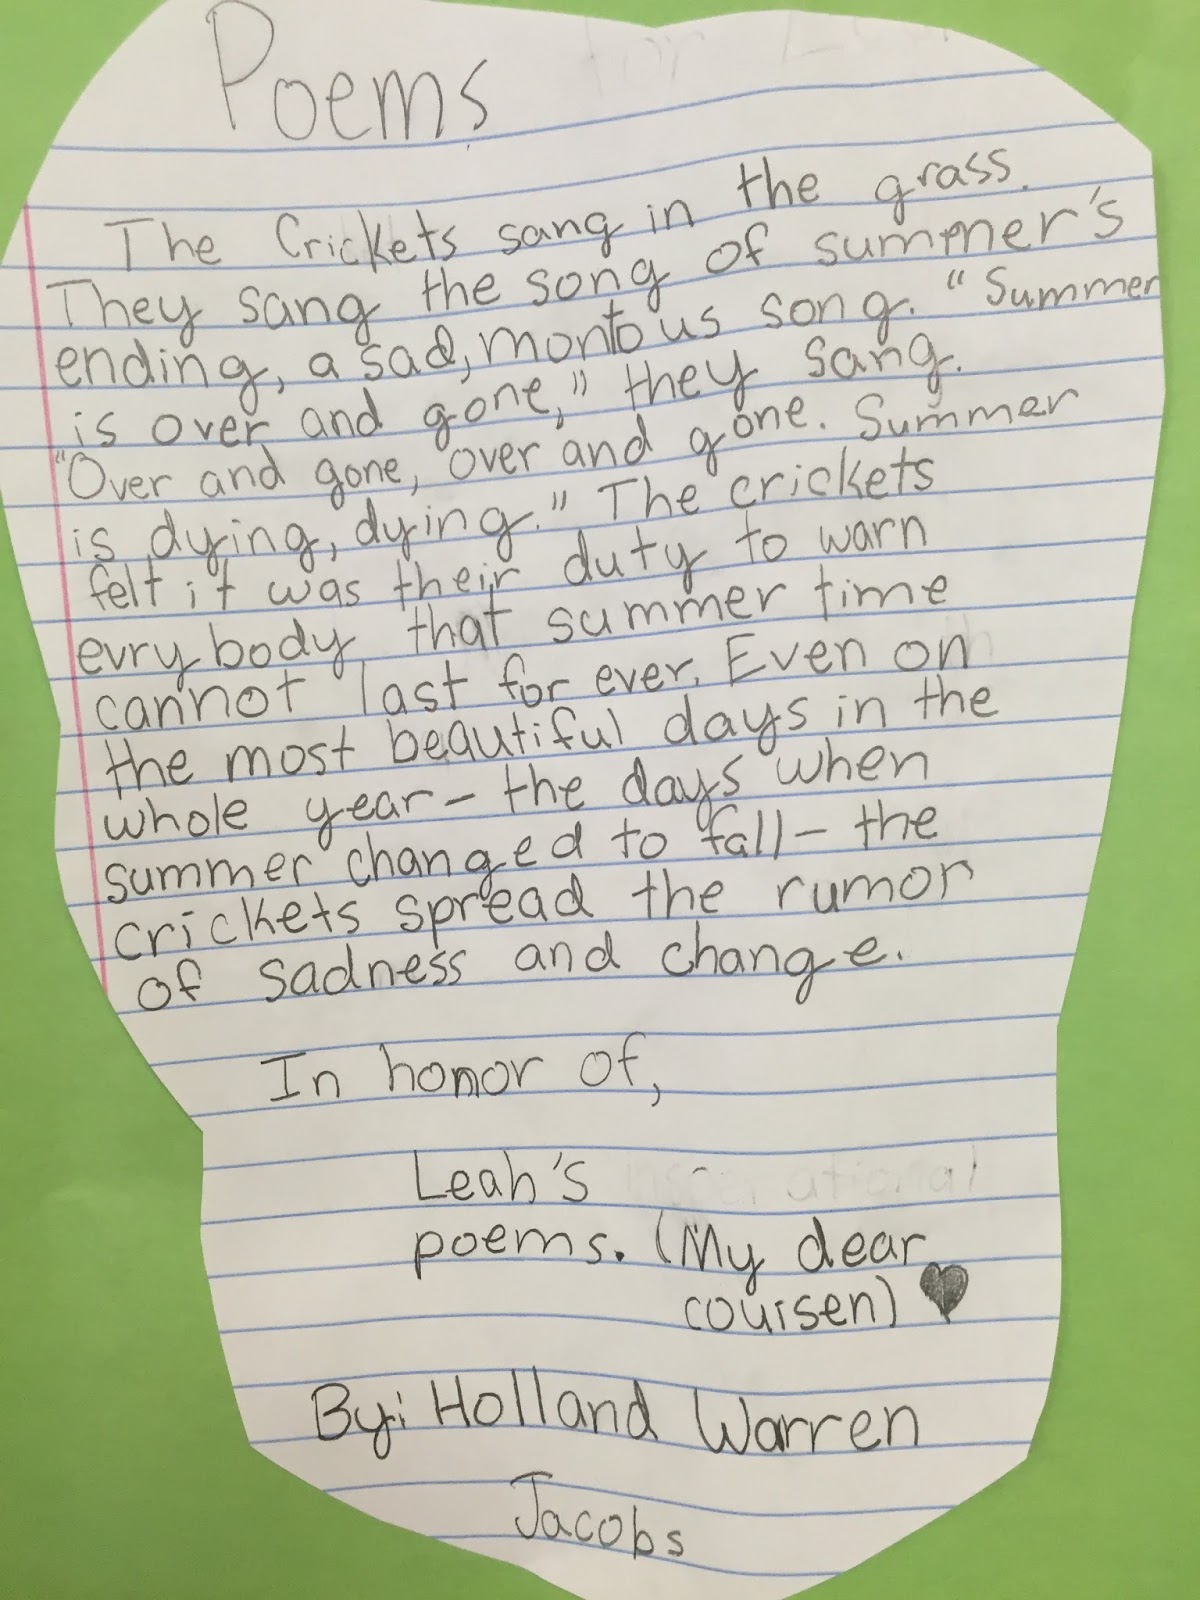 Poems
The Crickets sang in the grass.
They sang the song of summer's
ending, a sad, montous song. "Summer
is over and gone," they sang.
"Over and gone, over and gone. Summer
is dying, dying." The crickets
felt it was their duty to warn
evrybody that summer time
cannot last for ever. Even on
the most beautiful days in the
whole year- the days when
summer changed to fall- the
crickets spread the rumor
of sadness and change.
In honor of,
Leah's
poems. (My dear
couisen)
By: Holland Warren
Jacobs